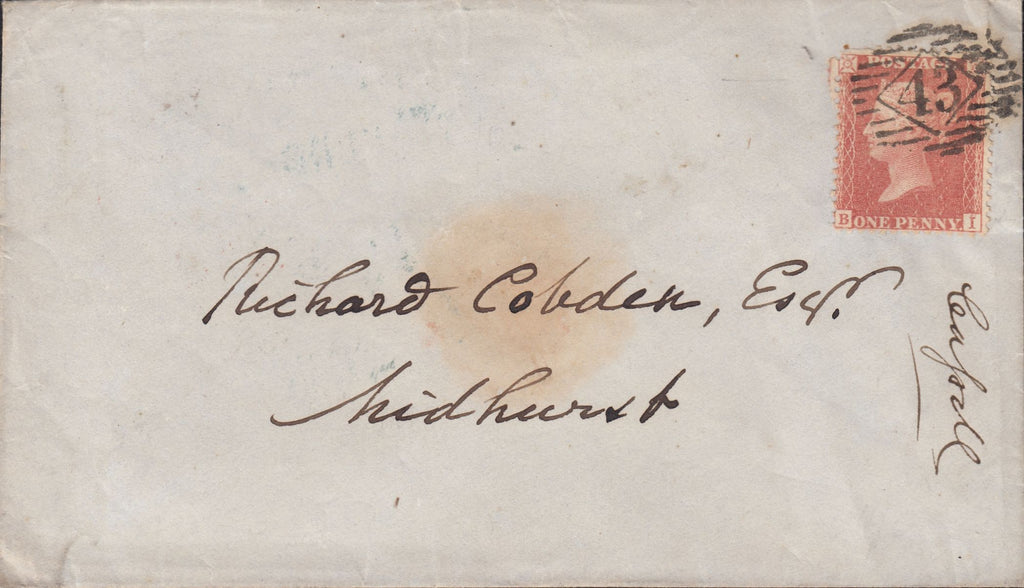 POSTAGE
43
B ONE PENNY. I
Richard Cobden, Esqr.
Midhurst